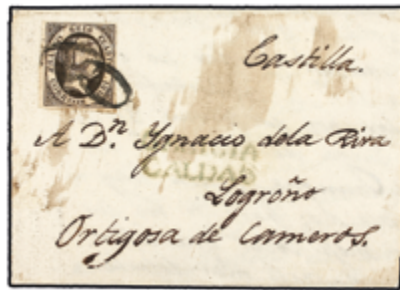 SEIS
Castilla.
A Dⁿ. Ygnacio dela Riva
CALDAS
Logroño
Ortigosa de Cameros.